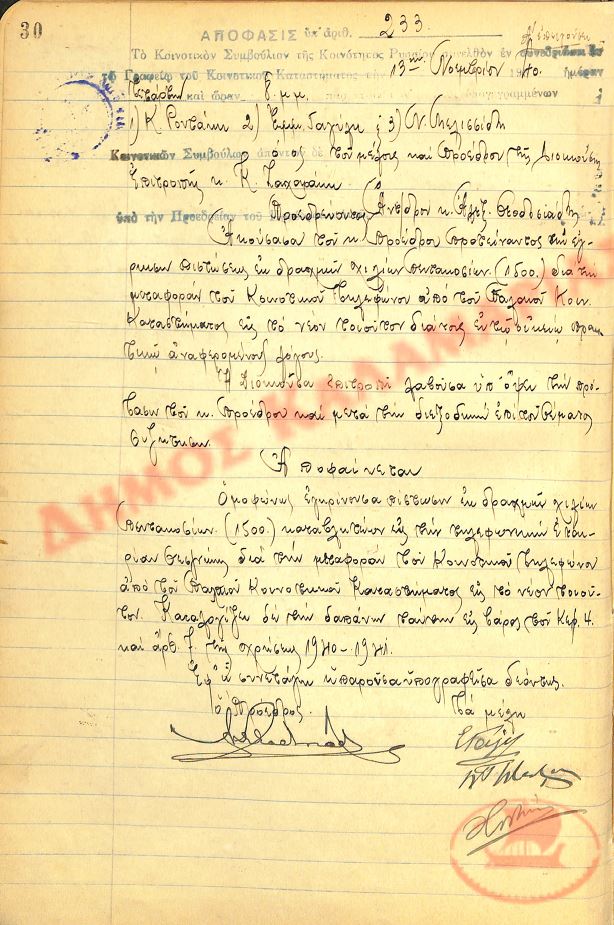 30
ΑΠΟΦΑΣΙΣ ὑπ' ἀριθ. 233
Τὸ Κοινοτικὸν Συμβούλιον τῆς Κοινότητος συνελθὸν ἐν
τῷ Γραφείῳ τοῦ Κοινοτικοῦ Καταστήματος τὴν 13ην Νοεμβρίου 1940 ἡμέραν
Τετάρτην καὶ ὥραν 6 μ.μ.
1) Κ. Ρουτάκη 2) Ἐμμ. 3) Ν. Μελισσίδη
Κοινοτικῶν Συμβούλων ὅλους τοῦ μέλους καὶ Προέδρου τῆς Διοικούσης
Ἐπιτροπῆς κ. Κ.
ὑπὸ τὴν Προεδρείαν τοῦ Προεδρεύοντος Ἀντ/δρου κ. Ἀλεξ.
Ἀκούσασα τοῦ κ. Προέδρου προτείναντος τὴν ἔγ-
κρισιν πιστώσεως ἐκ δραχμῶν χιλίων πεντακοσίων (1500.) διὰ τὴν
μεταφορὰν τοῦ Κοινοτικοῦ τηλεφώνου ἀπὸ τοῦ Παλαιοῦ Κοιν.
Καταστήματος εἰς τὸ νέον τοιοῦτον διὰ τοὺς ἐν τῷ οἰκείῳ πρακ-
τικῷ ἀναφερομένους λόγους.
Ἡ Διοικοῦσα Ἐπιτροπὴ λαβοῦσα ὑπ' ὄψει τὴν πρό-
τασιν τοῦ κ. Προέδρου καὶ μετὰ τὴν διεξοδικὴν ἐπὶ τοῦ θέματος
συζήτησιν.
Ἀποφαίνεται
Ὁμοφώνως ἐγκρίνουσα πίστωσιν ἐκ δραχμῶν χιλίων
πεντακοσίων (1500.) καταβλητέων εἰς τὴν τηλεφωνικὴν Ἑται-
ρίαν Θεσ/νίκης διὰ τὴν μεταφορὰν τοῦ Κοινοτικοῦ τηλεφώνου
ἀπὸ τοῦ Παλαιοῦ Κοινοτικοῦ Καταστήματος εἰς τὸ νέον τοιοῦ-
τον. Καταλογίζει δὲ τὴν δαπάνην ταύτην εἰς βάρος τοῦ Κεφ. 4.
καὶ ἄρθ. 7. τῆς χρήσεως 1940-1941.
Ἐφ' ᾧ συνετάγη ἡ παροῦσα ὑπογραφεῖσα δεόντως.
ὁ Πρόεδρος Τὰ μέλη
ΔΗΜΟΣ ΚΑΛΑΜΑΡΙΑΣ